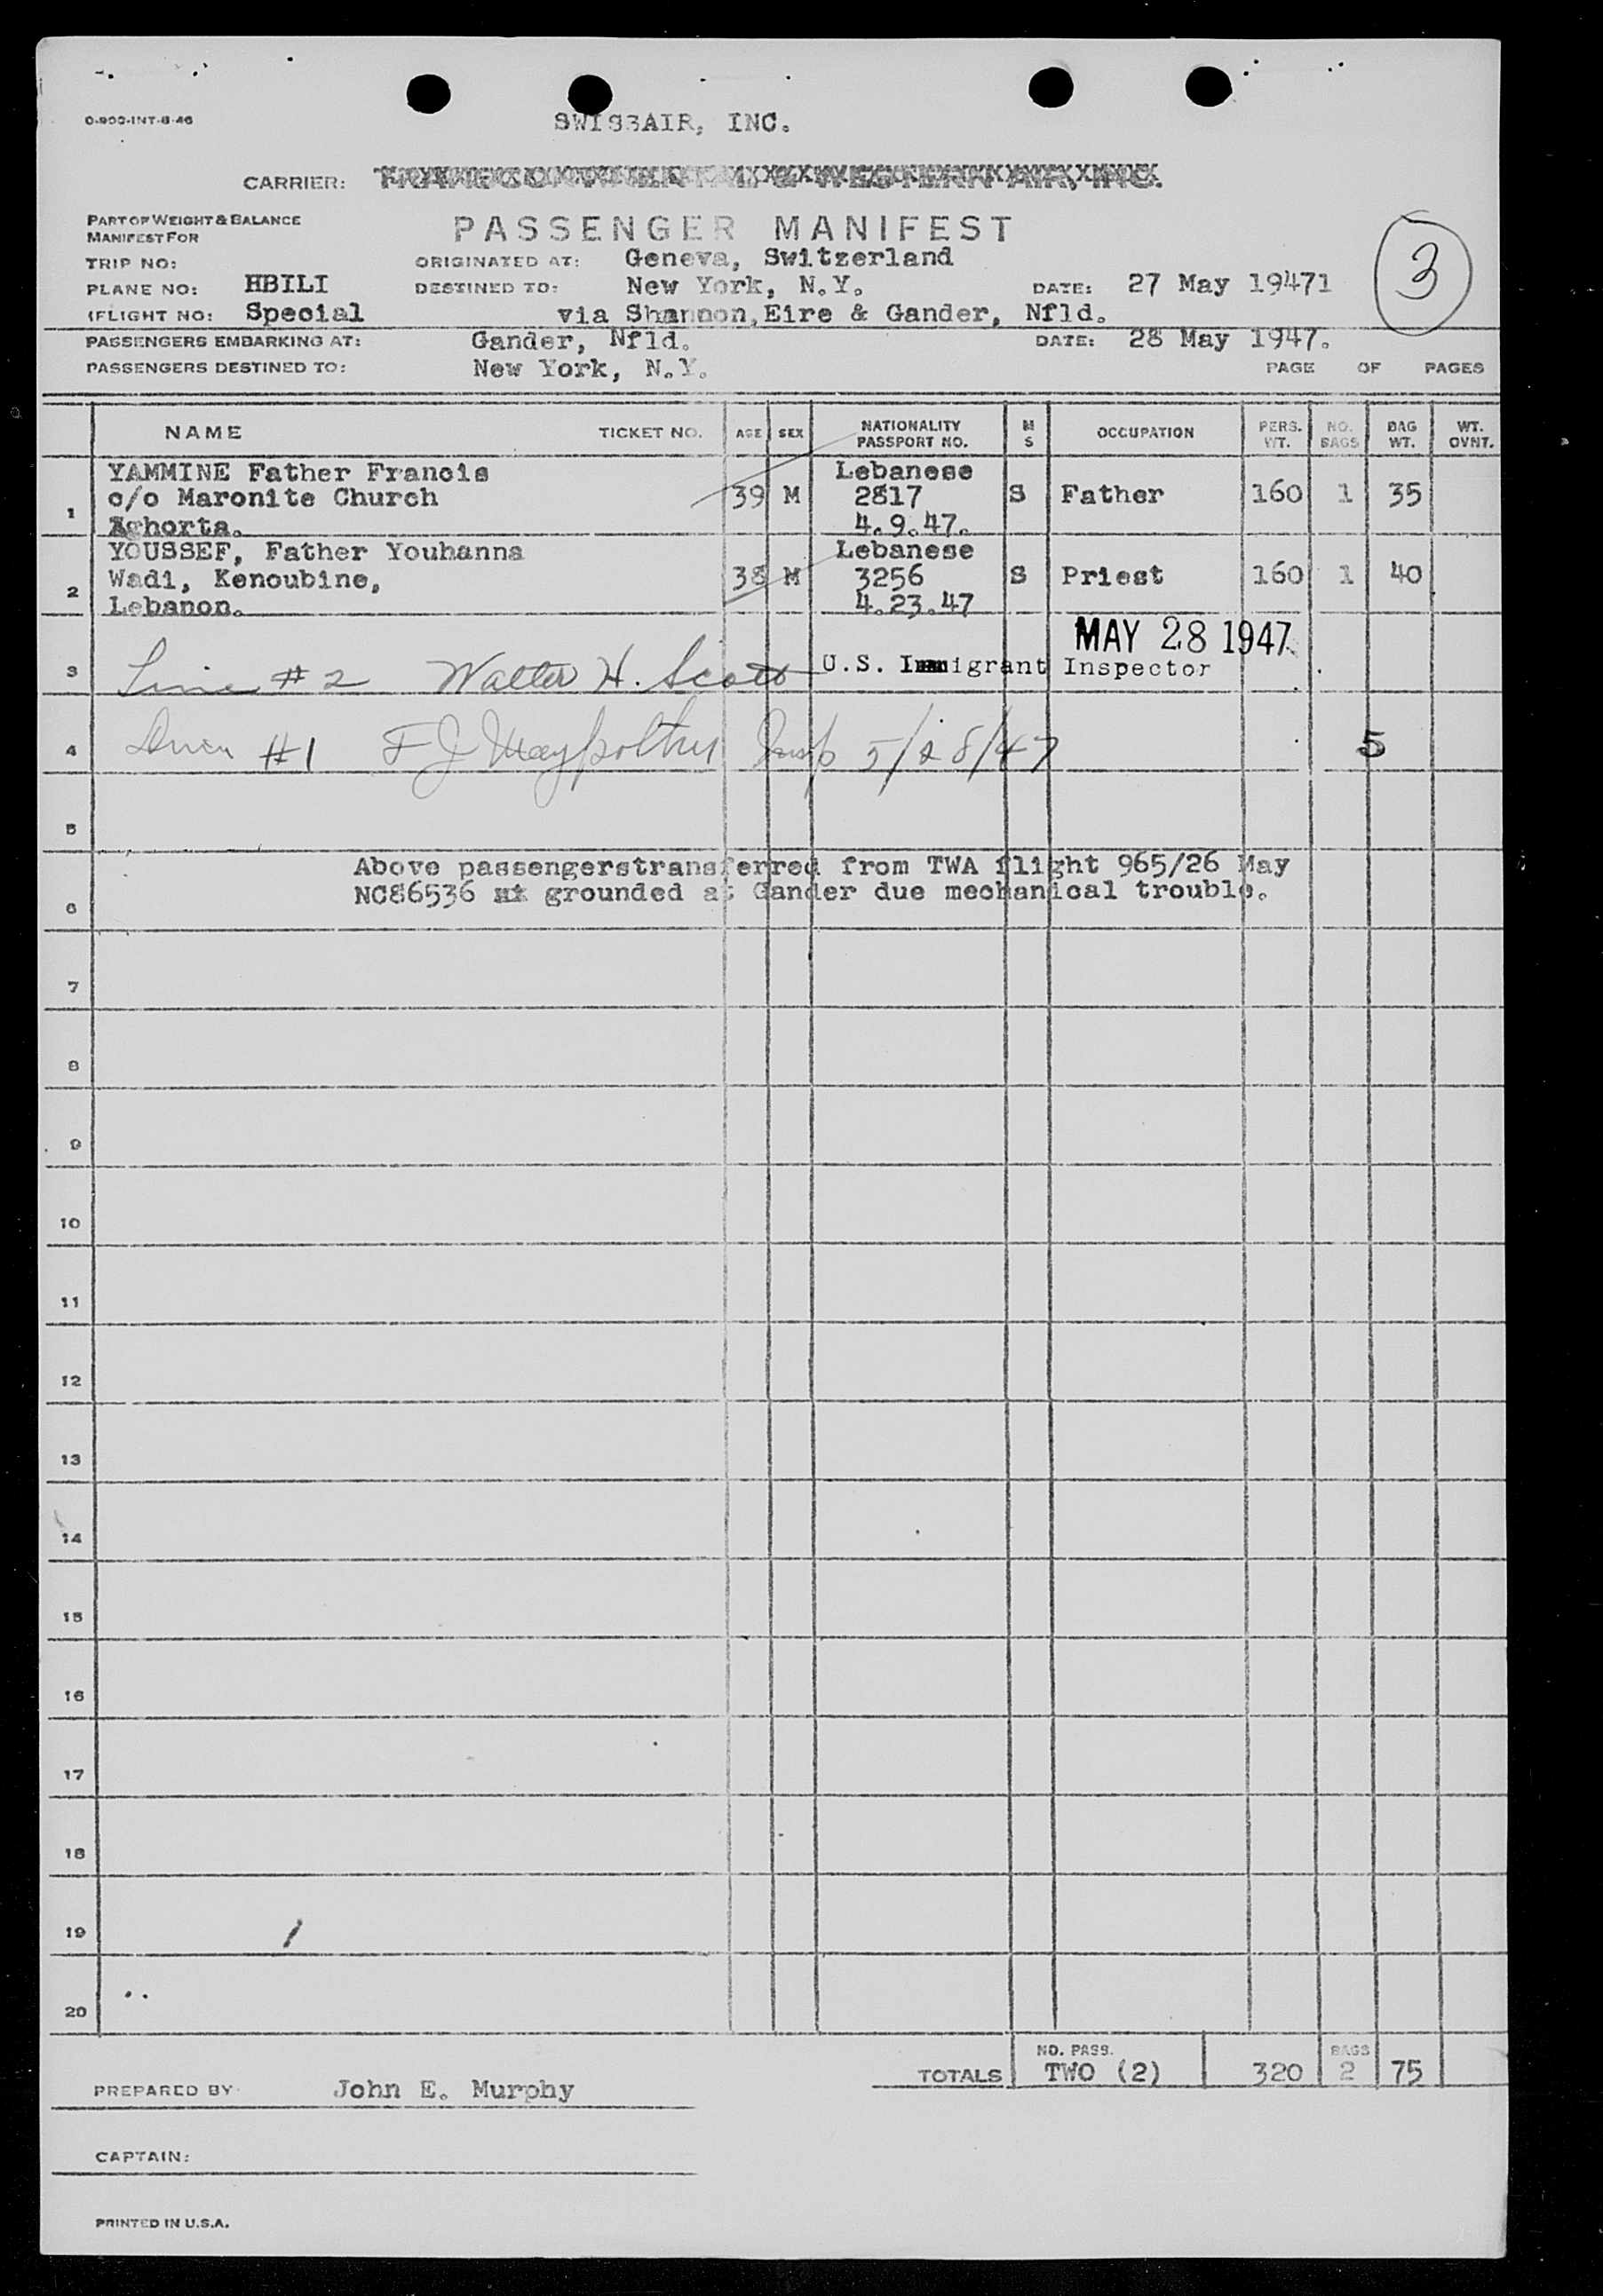 O-900-INT-8-46
SWISSAIR, INC.
CARRIER:
PART OF WEIGHT & BALANCE
MANIFEST FOR
PASSENGER MANIFEST
TRIP NO: ORIGINATED AT: Geneva, Switzerland
PLANE NO: HBILI DESTINED TO: New York, N.Y. DATE: 27 May 19471
(FLIGHT NO: Special via Shannon, Eire & Gander, Nfld.
3
PASSENGERS EMBARKING AT: Gander, Nfld. DATE: 28 May 1947.
PASSENGERS DESTINED TO: New York, N.Y. PAGE OF PAGES
NAME TICKET NO. AGE SEX NATIONALITY PASSPORT NO. M S OCCUPATION PERS. WT. NO. BAGS BAG WT. WT. OVNT.
YAMMINE Father Francis Lebanese
1 c/o Maronite Church 39 M 2817 S Father 160 1 35
4.9.47.
YOUSSEF, Father Youhanna Lebanese
2 Wadi, Kenoubine, 38 M 3256 S Priest 160 1 40
Lebanon. 4.23.47
MAY 28 1947
3 Line #2 Walter H. Scott U.S. Immigrant Inspector
4 #1 F J Insp 5/28/47 5
5
Above passengerstransferred from TWA flight 965/26 May
6 NC86536 grounded at Gander due mechanical trouble.
7
8
9
10
11
12
13
14
15
16
17
18
19
20
TOTALS NO. PASS. TWO (2) 320 BAGS 2 75
PREPARED BY John E. Murphy
CAPTAIN:
PRINTED IN U.S.A.